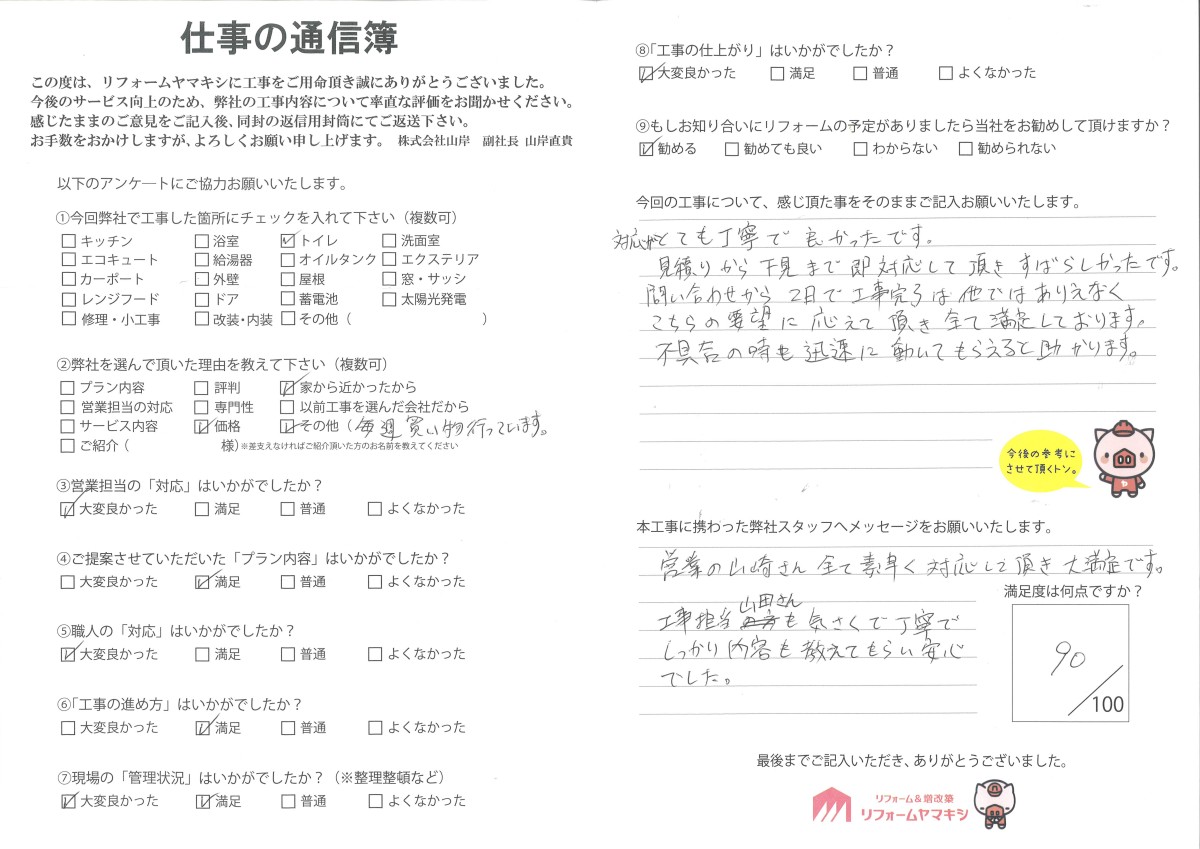 仕事の通信簿
この度は、リフォームヤマキシに工事をご用命頂き誠にありがとうございました。
今後のサービス向上のため、弊社の工事内容について率直な評価をお聞かせください。
感じたままのご意見をご記入後、同封の返信用封筒にてご返送下さい。
お手数をおかけしますが、よろしくお願い申し上げます。 株式会社山岸 副社長 山岸直貴
以下のアンケートにご協力お願いいたします。
①今回弊社で工事した箇所にチェックを入れて下さい(複数可)
□キッチン □浴室 ☑トイレ □洗面室
□エコキュート □給湯器 □オイルタンク □エクステリア
□カーポート □外壁 □屋根 □窓・サッシ
□レンジフード □ドア □蓄電池 □太陽光発電
□修理・小工事 □改装・内装 □その他( )
②弊社を選んで頂いた理由を教えて下さい(複数可)
□プラン内容 □評判 ☑家から近かったから
□営業担当の対応 □専門性 □以前工事を選んだ会社だから
□サービス内容 ☑価格 ☑その他(毎週買い物行っています。
□ご紹介( 様)※差支えなければご紹介頂いた方のお名前を教えてください
③営業担当の「対応」はいかがでしたか?
☑大変良かった □満足 □普通 □よくなかった
④ご提案させていただいた「プラン内容」はいかがでしたか?
□大変良かった ☑満足 □普通 □よくなかった
⑤職人の「対応」はいかがでしたか?
☑大変良かった □満足 □普通 □よくなかった
⑥「工事の進め方」はいかがでしたか?
□大変良かった ☑満足 □普通 □よくなかった
⑦現場の「管理状況」はいかがでしたか?(※整理整頓など)
☑大変良かった ☑満足 □普通 □よくなかった
⑧「工事の仕上がり」はいかがでしたか?
☑大変良かった □満足 □普通 □よくなかった
⑨もしお知り合いにリフォームの予定がありましたら当社をお勧めして頂けますか?
☑勧める □勧めても良い □わからない □勧められない
今回の工事について、感じ頂た事をそのままご記入お願いいたします。
対応がとても丁寧で良かったです。
見積りから下見まで即対応して頂きすばらしかったです。
問い合わせから2日で工事完了は他ではありえなく
こちらの要望に応えて頂き全て満足しております。
不具合の時も迅速に動いてもらえると助かります。
今後の参考に
させて頂くトン。
本工事に携わった弊社スタッフへメッセージをお願いいたします。
営業の山崎さん全て素早く対応して頂き大満足です。
工事担当山田さんも気さくで丁寧で
しっかり内容も教えてもらい安心
でした。
満足度は何点ですか?
90
/100
最後までご記入いただき、ありがとうございました。
リフォーム&増改築
リフォームヤマキシ